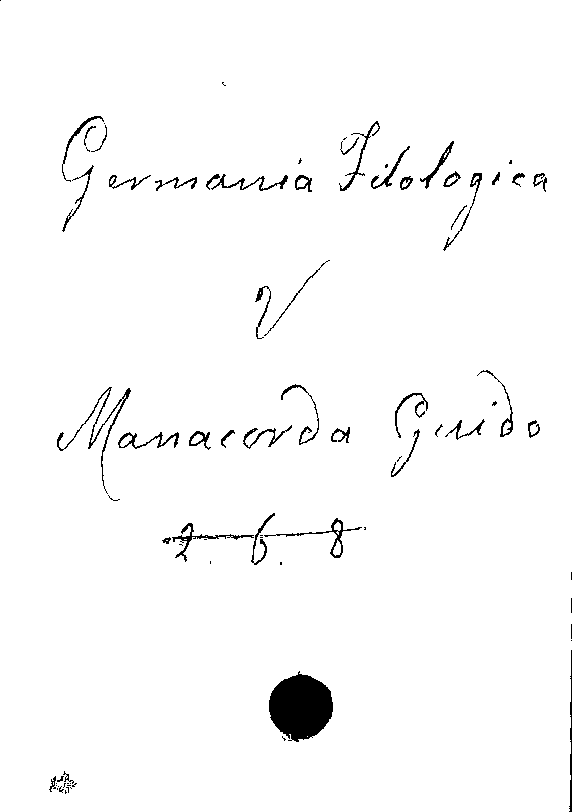 Germania Filologica
V
Manacorda Guido
2. 6. 8